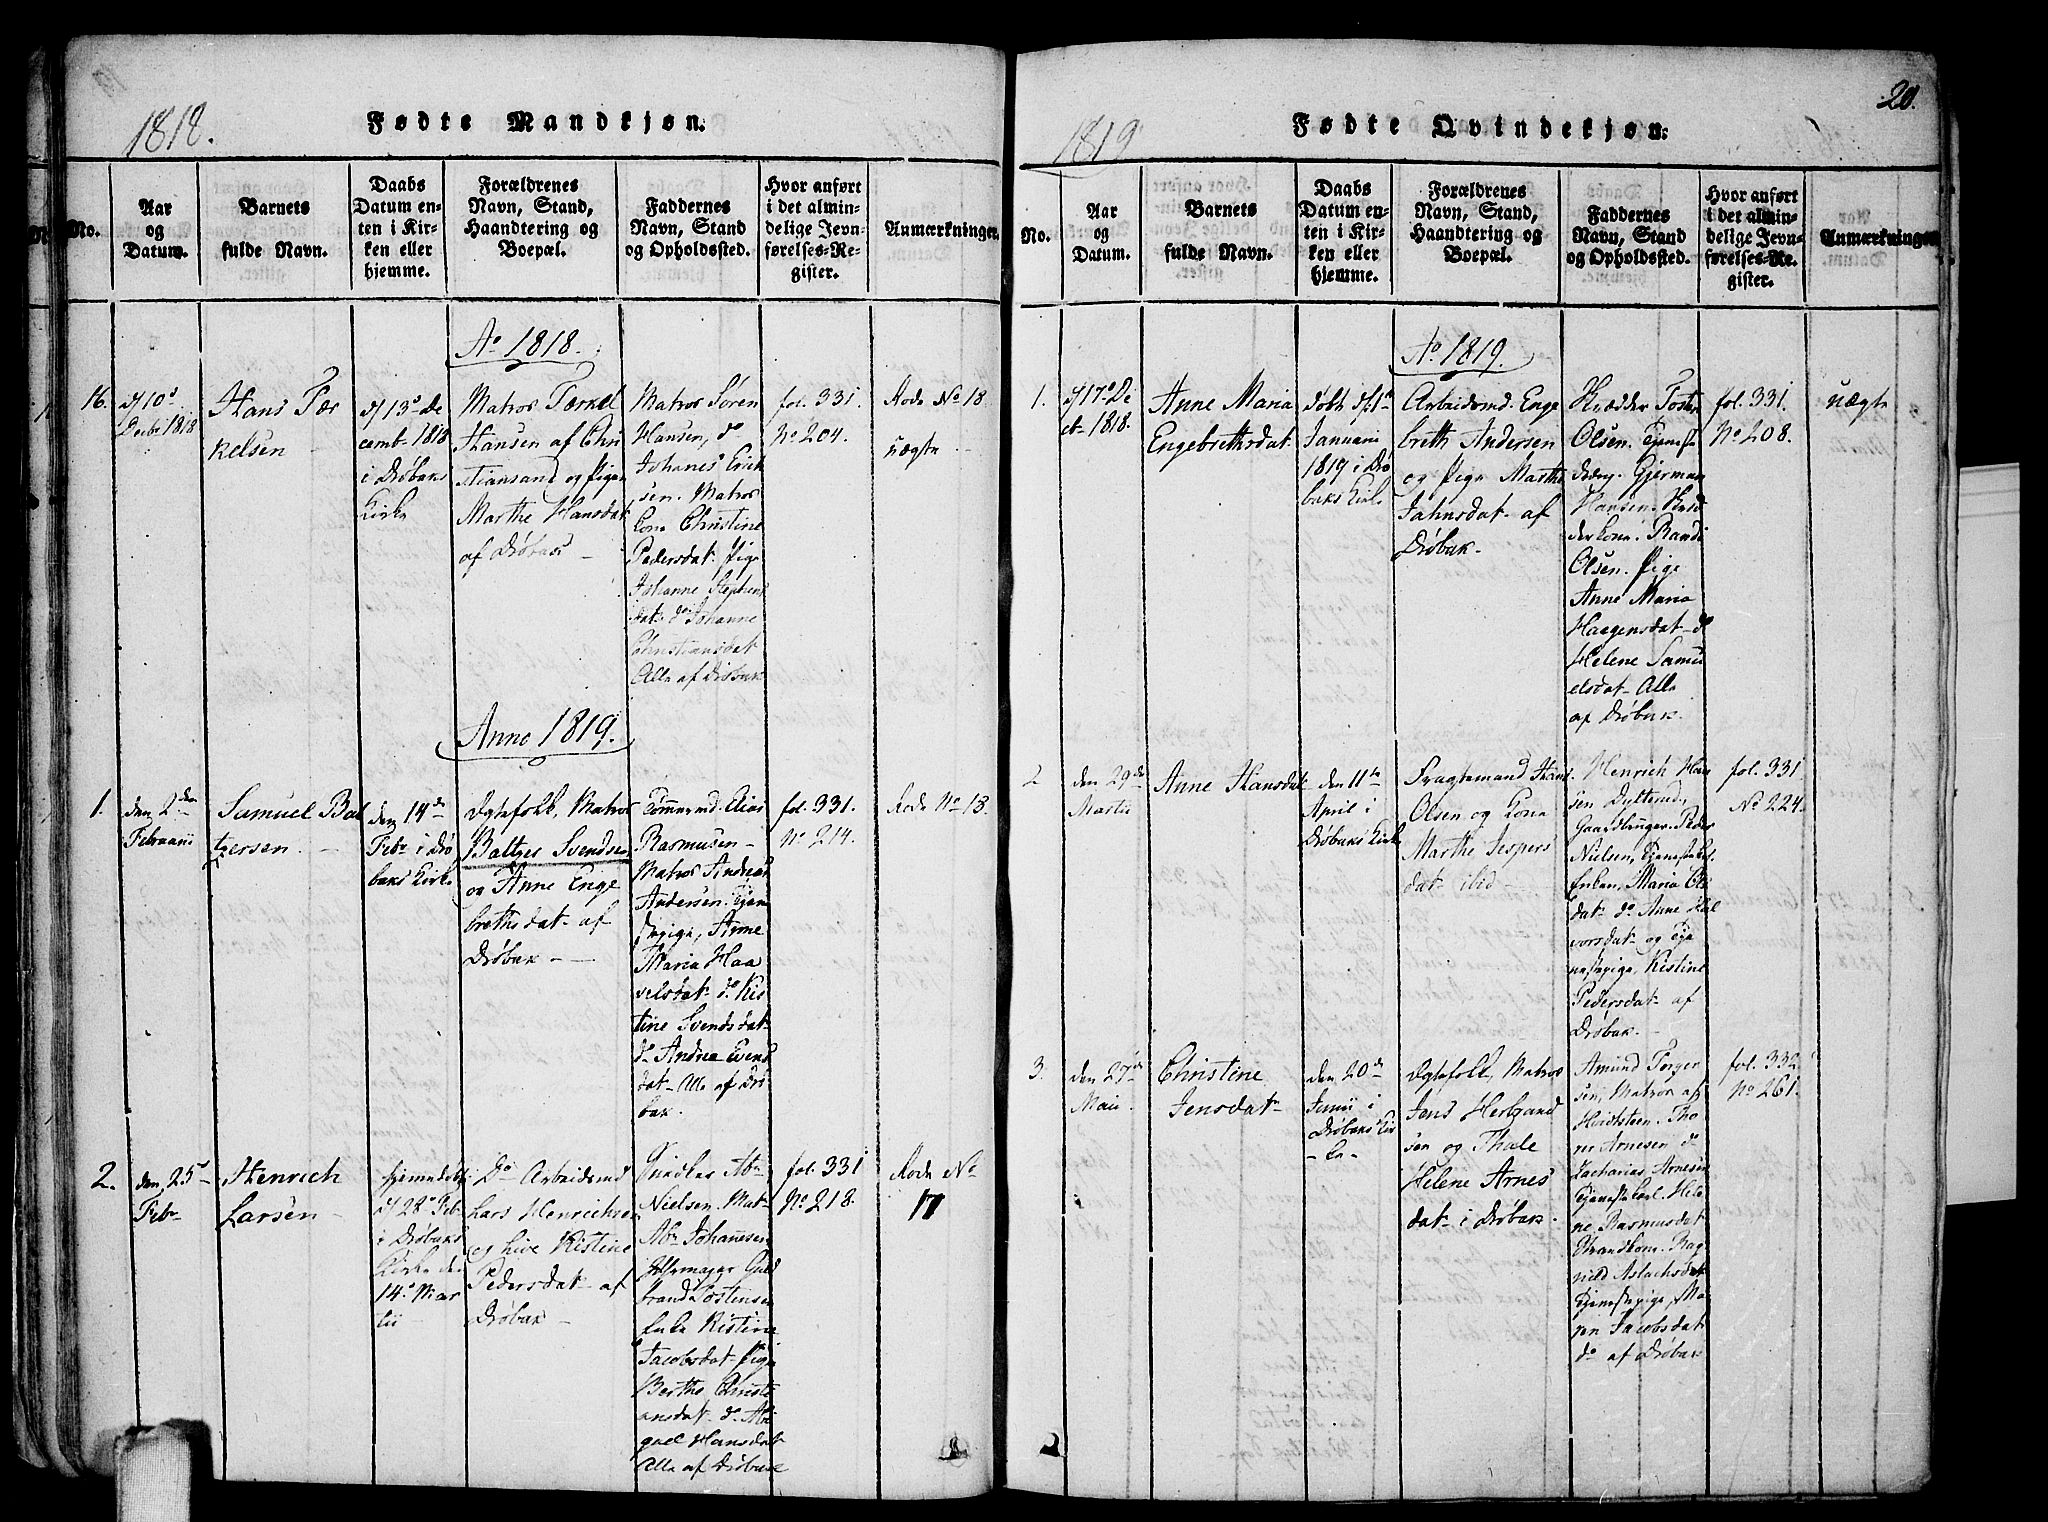 1818.
Fødte Mandkjøn.
No.
Aar
og
Datum.
Barnets
fulde Navn.
Daabs
Datum en-
ten i Kir-
ken eller
hjemme.
Forældrenes
Navn, Stand,
Haandtering og
Boepæl.
Faddernes
Navn, Stand
og Opholdssted.
Hvor anført
i det almin-
delige Jevn-
førelses-Re-
gister.
Anmærkninger.
Ao 1818.
16.
d 10d
Decbr 1818
Hans Tær
kelsen
d 13o De
cembr 1818
i Drøbaks
Kirke
Matros Terkel
Hansen af Chri
stiansand og Pigen
Marthe Hansdatr
af Drøbak
Matros Søren
Hansen, do
Johanes Erick
sen. Matros
kone Christine
Pedersdatr Pige
Johanne Stephens
datr do Johanne
Christiansdatr
Alle af Drøbak
fol. 331.
No 204.
Rode No 18.
uægte
Anno 1819.
1.
den 2den
Februarii
Samuel Bal
tzersen.
den 14de
Febr i Drø
baks Kirke
Ægtefolk, Matros
Baltzer Svendsen
og Anne Enge
brethsdatr af
Drøbak
Tømmermd Elias
Rasmusen
Matros Andreas
Andersen. Tjene
stepige, Anne
Maria Haa
velsdatr do Kis
tine Svendsdatr
do Andrea Svends
datr Alle af Drø
bak.
fol. 331.
No 214.
Rode No 18.
2.
den 25d
Febr
Henrich
Larsen
hjemmedøbt
d 28o Feb
i Drøbaks
Kirke den
14o Mar
tii
Do Arbeidsmd
Lars Henrichsen
og hive Kistine
Pedersdatr af
Drøbak
Nielsen. Mat-
Abr Johannesen
brand Tostensen
Enke Kistine
Jacobsdatr Pige
Berthe Christi
ansdatr do Abi
gael Hansdatr
Alle af Drøbak
fol. 331
No 218.
Rode No
17
20.
1819
Fødte Qvindekjøn.
No.
Aar
og
Datum.
Barnets
fulde Navn.
Daabs
Datum en-
ten i Kir-
ken eller
hjemme.
Forældrenes
Navn, Stand,
Haandtering og
Boepæl.
Faddernes
Navn, Stand
og Opholdssted.
Hvor anført
i det almin-
delige Jevn-
førelses-Re-
gister.
Anmærkninger
Ao 1819.
1.
d 17o De
cbr 1818.
Anne Maria
Engebrethsdatr
døbt d 1o
Januarii
1819 i Drø
baks Kirke
Arbeidsmd Enge
breth Andersen
og Pige Marthe
Jahnsdatr af
Drøbak.
Skrædder Tosten
Olsen. Tjeneste
dreng Gjermun
Hansen. Skræd
derkone Randi
Olsen. Pige
Anne Maria
Haagensdatr do
Helene Samu
elsdatr Alle
af Drøbak.
fol. 331.
No 208.
uægte
2
den 29de
Martii
Anne Hansdatr
den 11te
April i
Drøbaks Kirke
Fragtemand Hans
Olsen og Kone
Marthe Jespers
datr ibid
Henrich Han
sen
Nielsen, Tjenestekarl
Enken, Maria Ols
datr do Anne Hal
vorsdatr og Tje
nestepige, Kistine
Pedersdatr af
Drøbak.
fol. 331
No 224.
3.
den 27de
Maii.
Christine
Jensdatr
den 20de
Junii i
Drøbaks Kir
ke
Ægtefolk, Matros
Jens Helgand
sen og Thale
Helene Arnes
datr i Drøbak.
Amund Torger
sen, Matros af
Hvidsteen. Tho
re Arnesen do
Zacharias Arnesen
Tjenestekarl. Hele
ne Rasmusdatr
Strandkone. Rag
nild Aslachsdatr
Tjenestepige, Ma
ren Jacobsdatr
do af Drøbak
fol. 332
No 261.